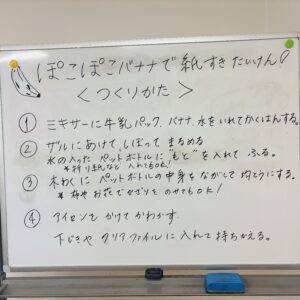 ぽこぽこバナナで紙すきたいけん!
<つくりかた>
① ミキサーに牛乳パック、バナナ、水をいれてかくはんする。
② ザルにあけて、しぼって まるめる
水の入った ペットボトルに"もと"を入れて ふる。
*折り紙など 入れてもOK!
③ 木わくに ペットボトルの中身をながして均とうにする。
* 枝や お花でかざりを のせてもOK!
④ アイロンを かけて かわかす。
下じきや クリアファイルに 入れて 持ちかえる。